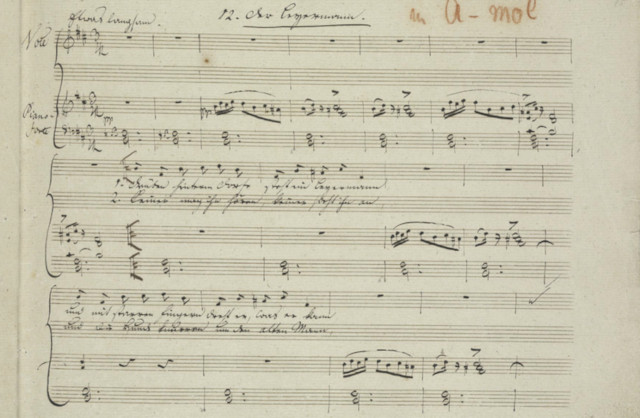 Etwas langsam. 12. Der Leyermann. in A-mol
Piano-
forte
1. Drüben hinterm Dorfe steht ein Leyermann
2. Keiner mag ihn hören, keiner sieht ihn an
und mit starren Fingern dreht er, was er kann
und die Hunde knurren um den alten Mann,